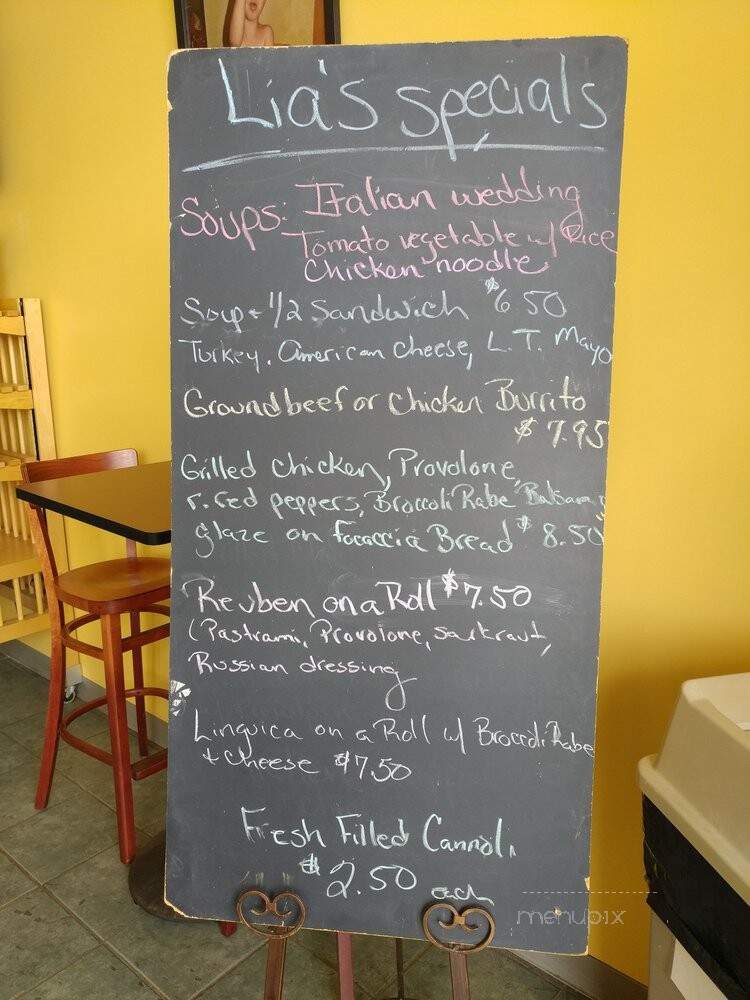 Lia's specials
Soups: Italian wedding
Tomato vegetable w/ Rice
Chicken noodle
Soup + 1/2 Sandwich $6.50
Turkey, American cheese, L.T. Mayo
Ground beef or chicken Burrito
$7.95
Grilled chicken, Provolone,
r. red peppers, Broccoli Rabe Balsamic
glaze on focaccia Bread $8.50
Reuben on a Roll $7.50
(Pastrami, Provolone, sarkraut,
Russian dressing
Linguica on a Roll w/ Broccoli Rabe
+ cheese $7.50
Fresh Filled Cannoli
$2.50 each
menupix